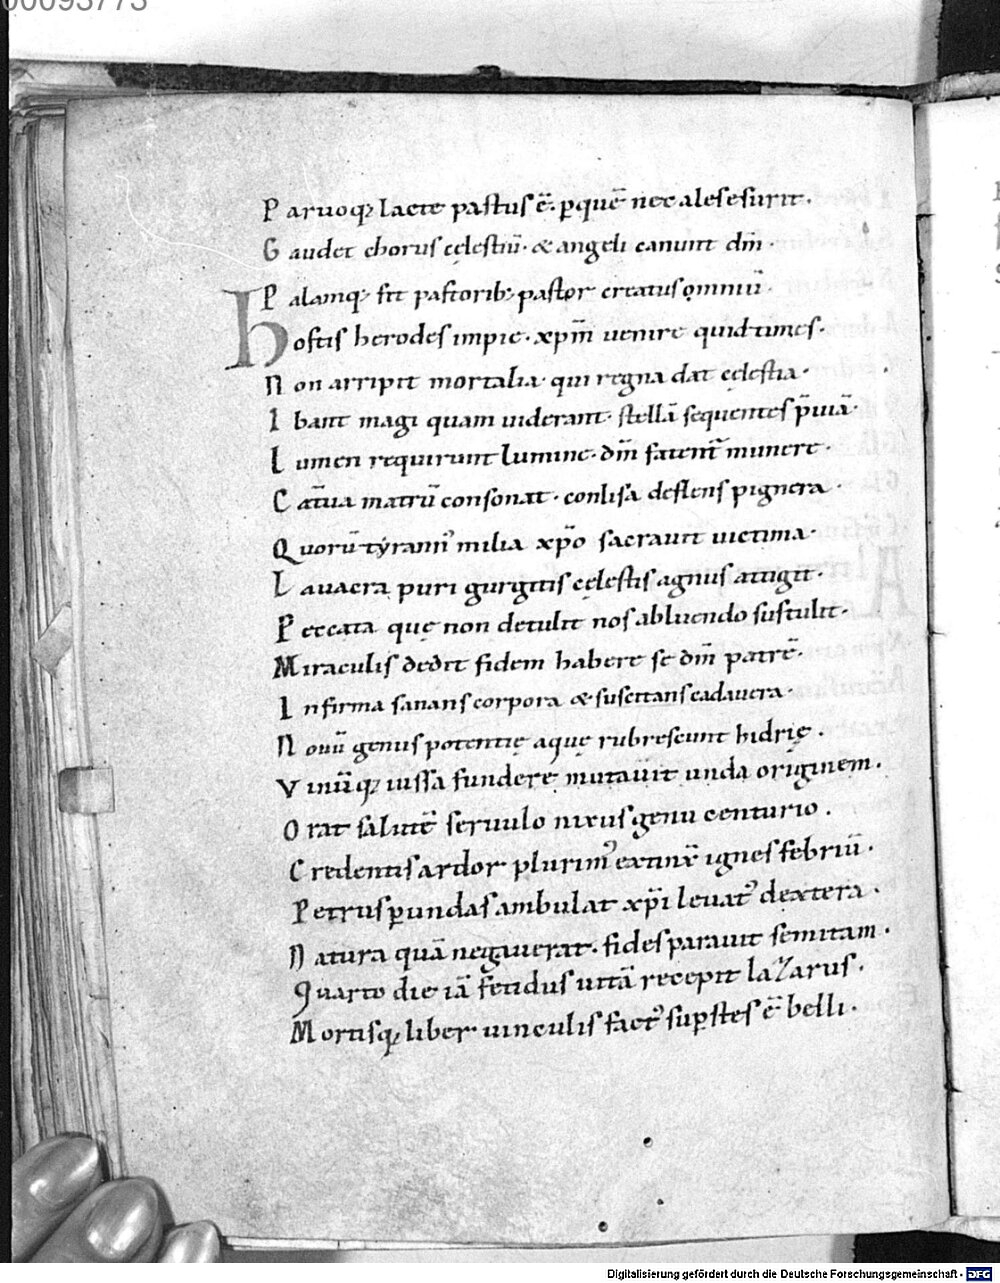 00093773
Paruoq; lacte pastus ē· ꝑquē nec ales esurit·
Gaudet chorus cęlestiū· & angeli canunt dm̄·
Palamq; fit pastorib; pastor creatus omniū·
Hostis herodes impie· xp̄m uenire quid times·
Non arripit mortalia· qui regna dat cęlestia·
Ibant magi quam uiderant· stellā sequentes p̄uiā·
Lumen requirunt lumine· dm̄ fatent᷑ munere·
Cat̄ua matrū consonat· conlisa deflens pignera·
Quorū tyrann᾿ milia xp̄o sacrauit uictima·
Lauacra puri gurgitis cęlestis agnus attigit·
Peccata quę non detulit nos abluendo sustulit·
Miraculis dedit fidem habere se dm̄ patrē·
Infirma sanans corpora & suscitans cadauera·
Nouū genus potentię aquę rubrescunt hidrię·
Vinūq; iussa fundere mutauit unda originem·
Orat salutē seruulo nixus genu centurio·
Credentis ardor plurim᾿ extinx̄ ignes febriū·
Petrus ꝑ undas ambulat xp̄i leuat᷑ dextera·
Natura quā negauerat· fides parauit semitam·
Quarto die iā fetidus uitā recepit lazarus·
Mortisq; liber uinculis fact᾿ suꝑstes ē belli·
Digitalisierung gefördert durch die Deutsche Forschungsgemeinschaft - DFG